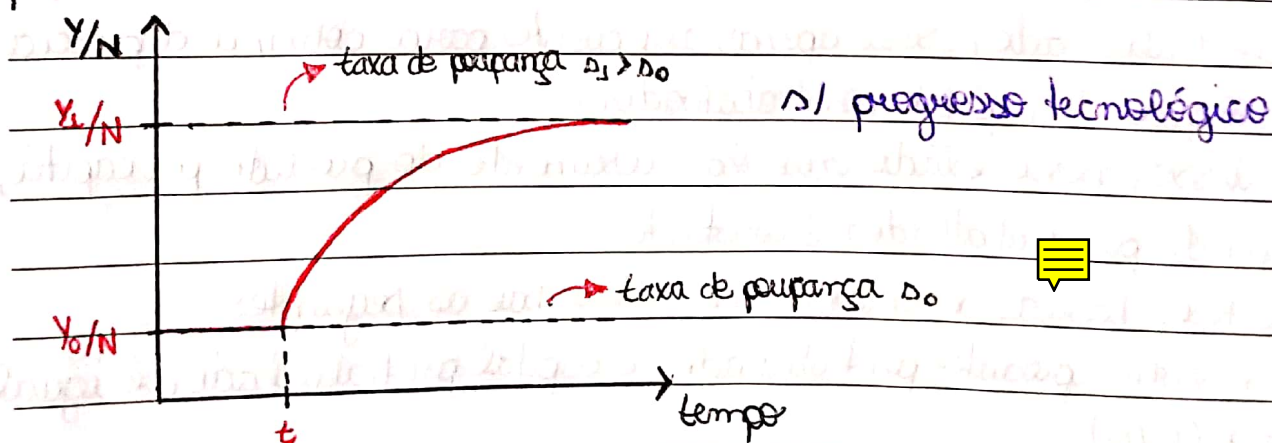 Y/N
taxa de poupança s₁>s₀
Y₁/N
s/ progresso tecnológico
taxa de poupança s₀
Y₀/N
tempo
t